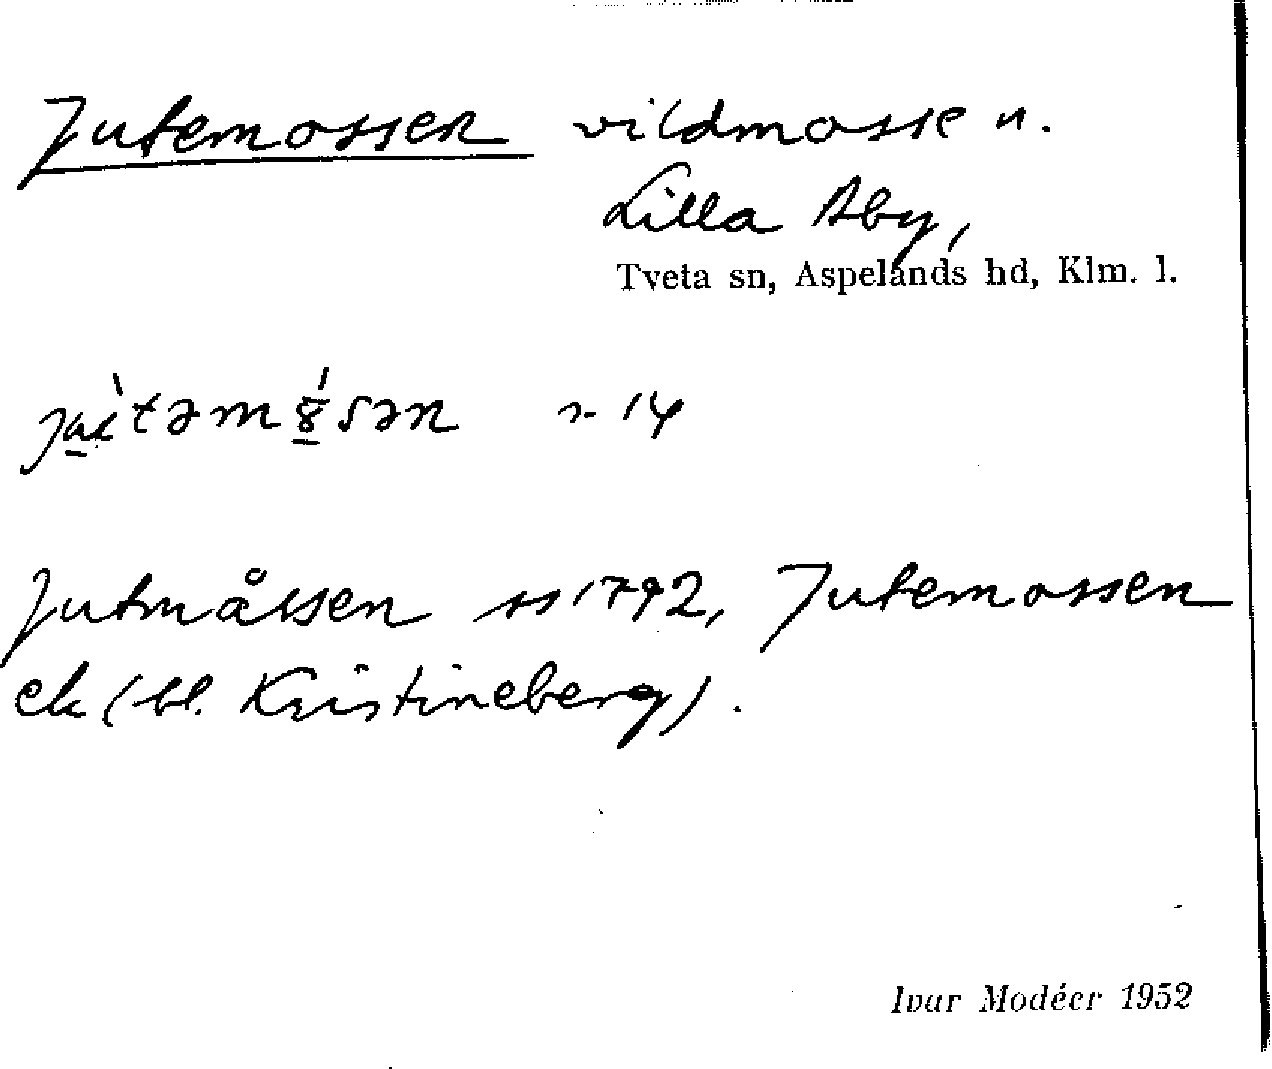 Jutemossen vildmosse u.
Lilla Aby,
Tveta sn, Aspelands hd, Klm. l.
r 14
Jutmåssen ss 1792, Jutemossen
ek (bl. Kristineberg).
Ivar Modéer 1952